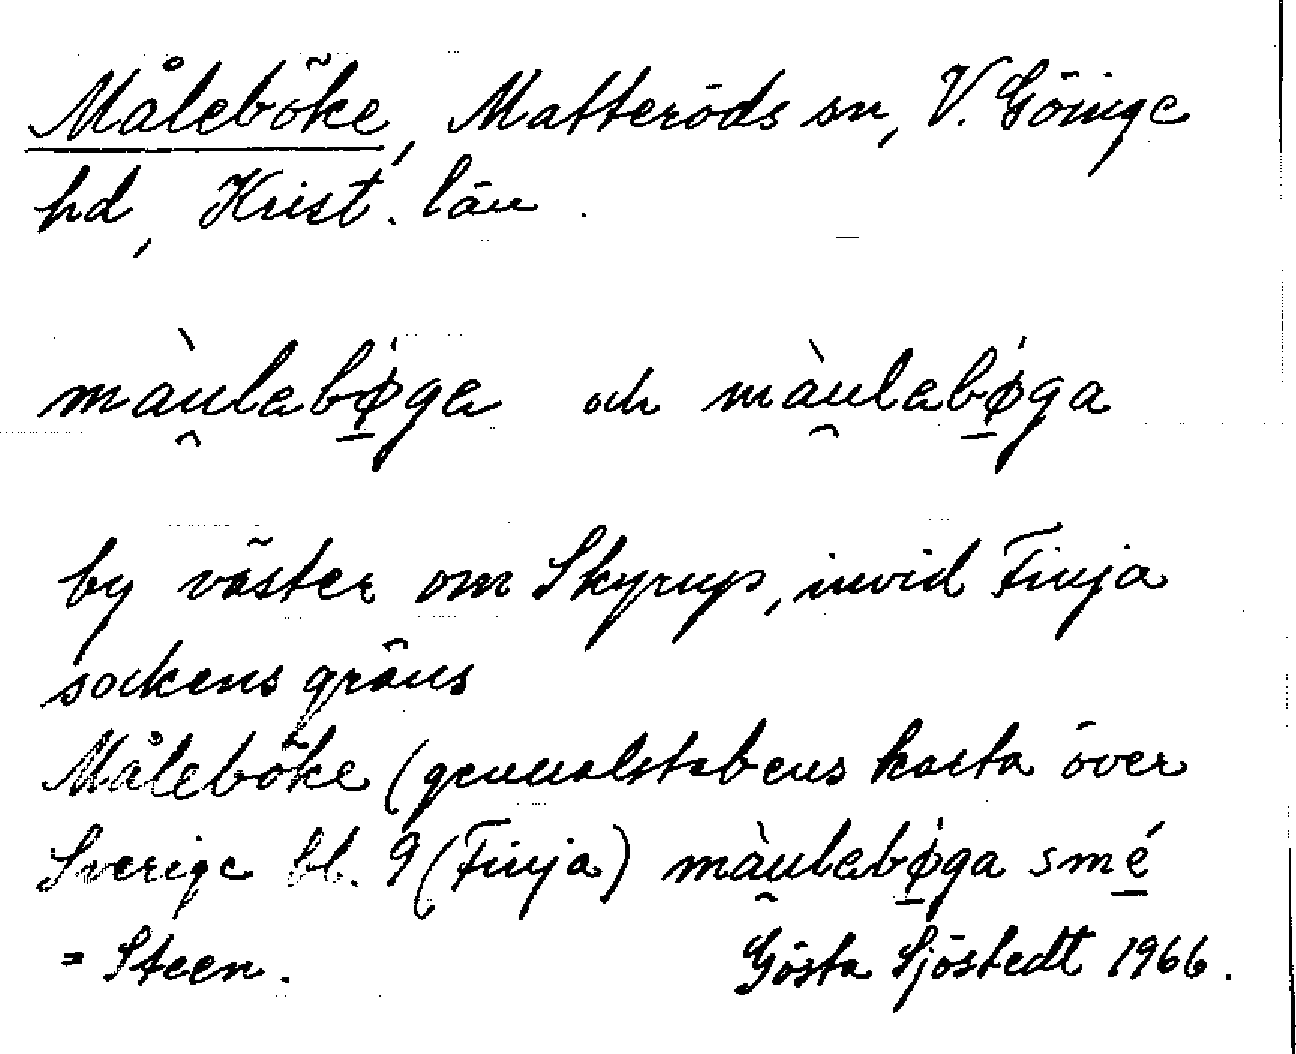 Måleböke, Matteröds sn, V. Göinge
hd, Krist. län.
màu̯labǿ̱ga och màu̯labǿ̱ga
by väster om Skyrup, invid Finja
sockens gräns
Måleböke (generalstabens karta över
Sverige bl. 9 (Finja) màu̯labǿ̱ga smé̱
= Steen. Gösta Sjöstedt 1966.